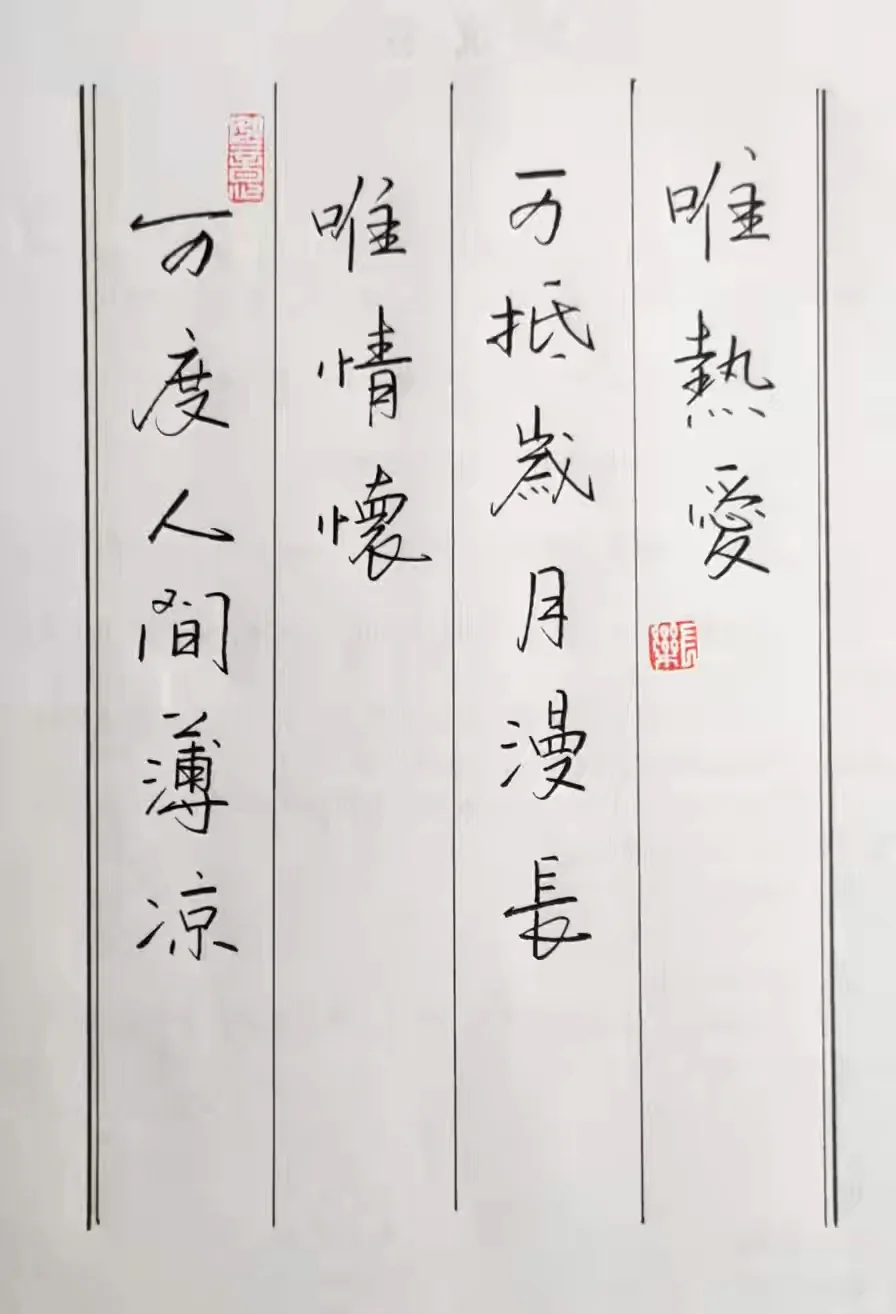 唯熱愛
可抵歲月漫長
唯情懷
可度人間薄凉
長樂